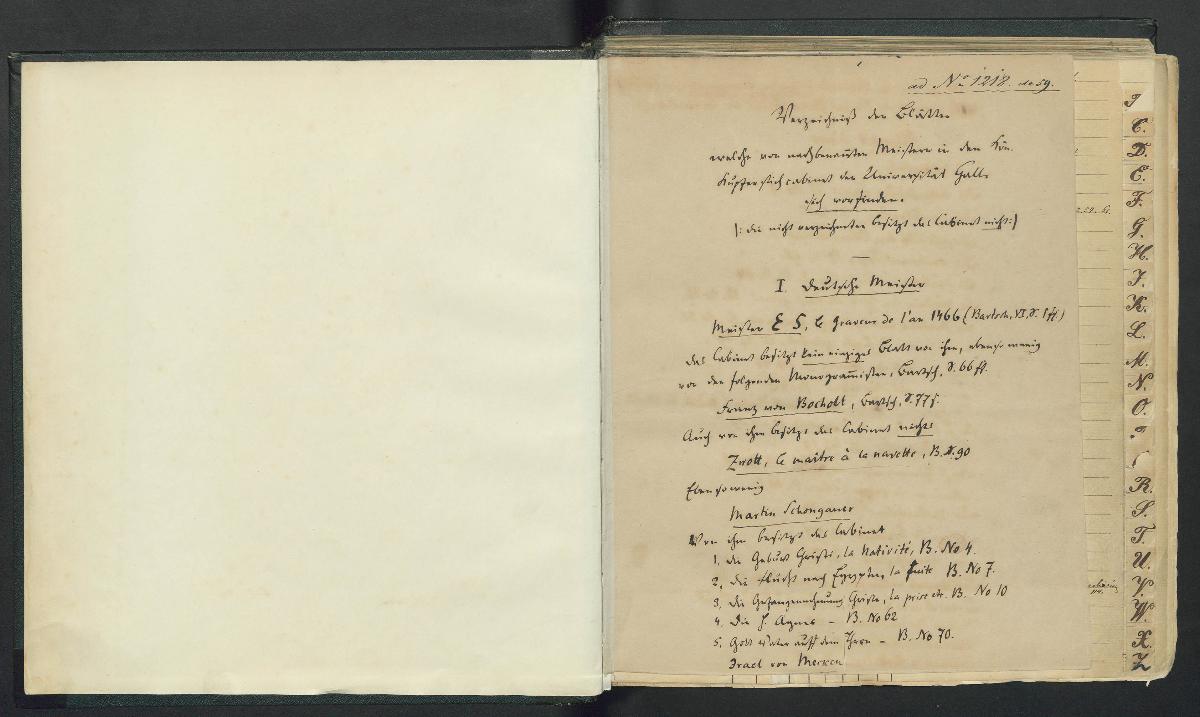 ad No 1218. de 59.
Verzeichniß der Blätter
welche von nachbenannten Meistern in dem Kön.
Kupferstichcabinet der Universität Halle
sich vorfinden.
|: die nicht verzeichneten besitzt das Cabinet nicht :|
I. Deutsche Meister
Meister E S, le graveur de l'an 1466 (Bartsch, VI, S. 1 ff.)
das Cabinet besitzt kein einziges Blatt von ihm, ebenso wenig
von den folgenden Monogrammisten, Bartsch, S. 66 ff.
Franz von Bocholt, Bartsch, S. 77 f.
Auch von ihm besitzt das Cabinet nichts
Zwott, le maître à la navette, B. S. 90
Ebensowenig
Martin Schongauer
Von ihm besitzt das Cabinet
1. die Geburt Christi, la Nativité, B. No 4.
2. die Flucht nach Egypten, la fuite B. No 7.
3. die Gefangennehmung Christi, la prise etc. B. No 10
4. die h. Agnes – B. No 62
5. Gott Vater auf dem Thron – B. No 70.
Israel von Mecken
C.
D.
E.
F.
G.
H.
I.
K.
L.
M.
N.
O.
R.
S.
T.
U.
V.
W.
X.
Z